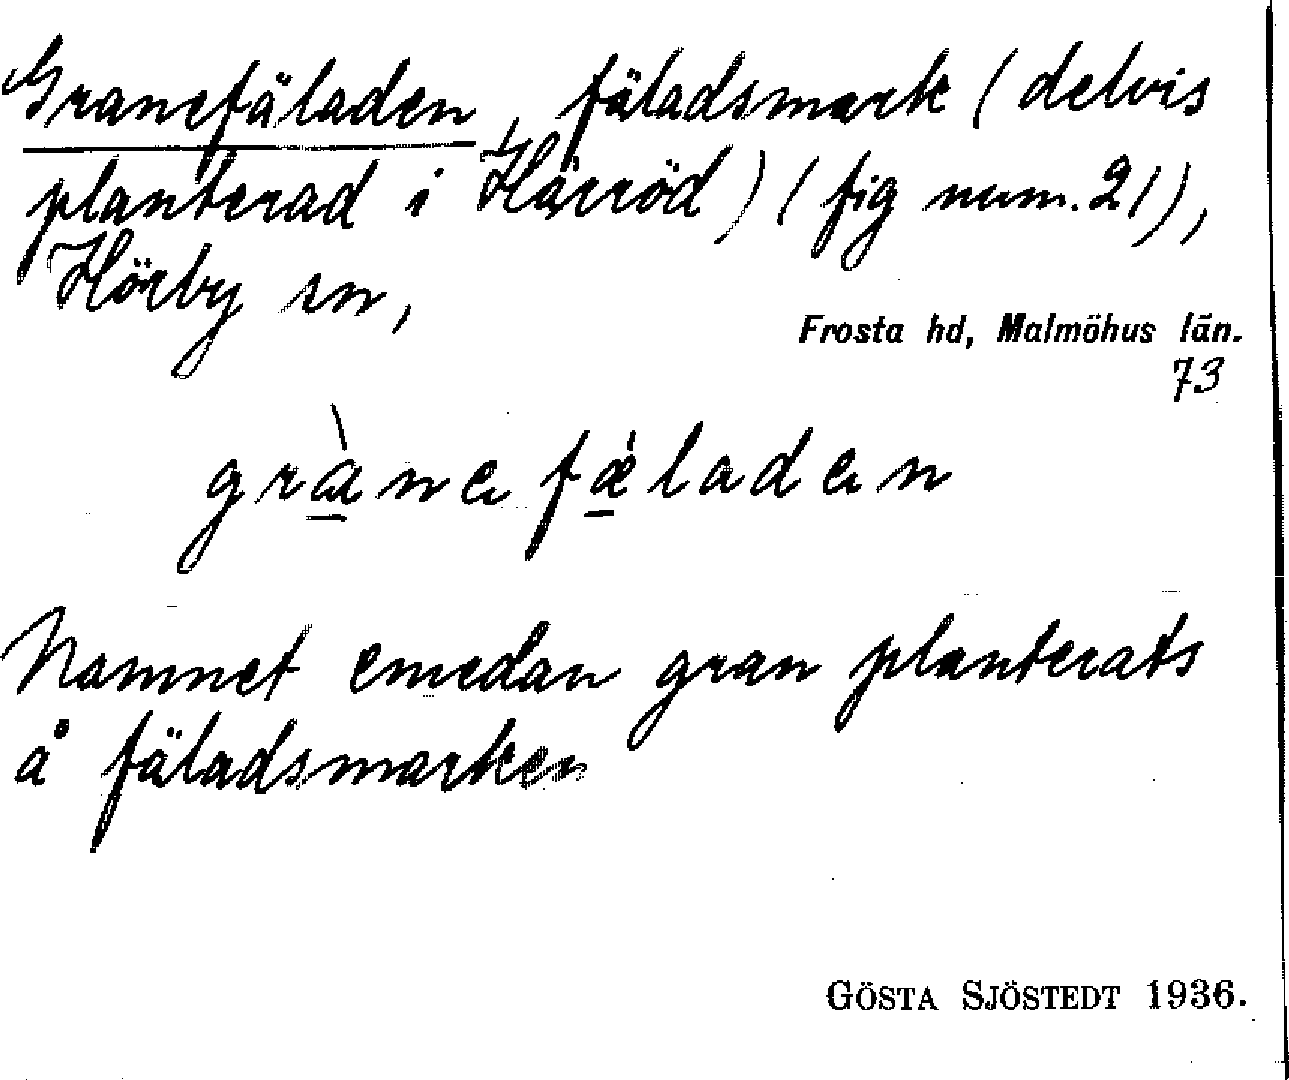 Granefäladen, fäladsmark (delvis
planterad i Härröd) (fig num. 21),
Hörby sn,
Frosta hd, Malmöhus län.
73
gràne fǽladen
Namnet emedan gran planterats
å fäladsmarken
GÖSTA SJÖSTEDT 1936.